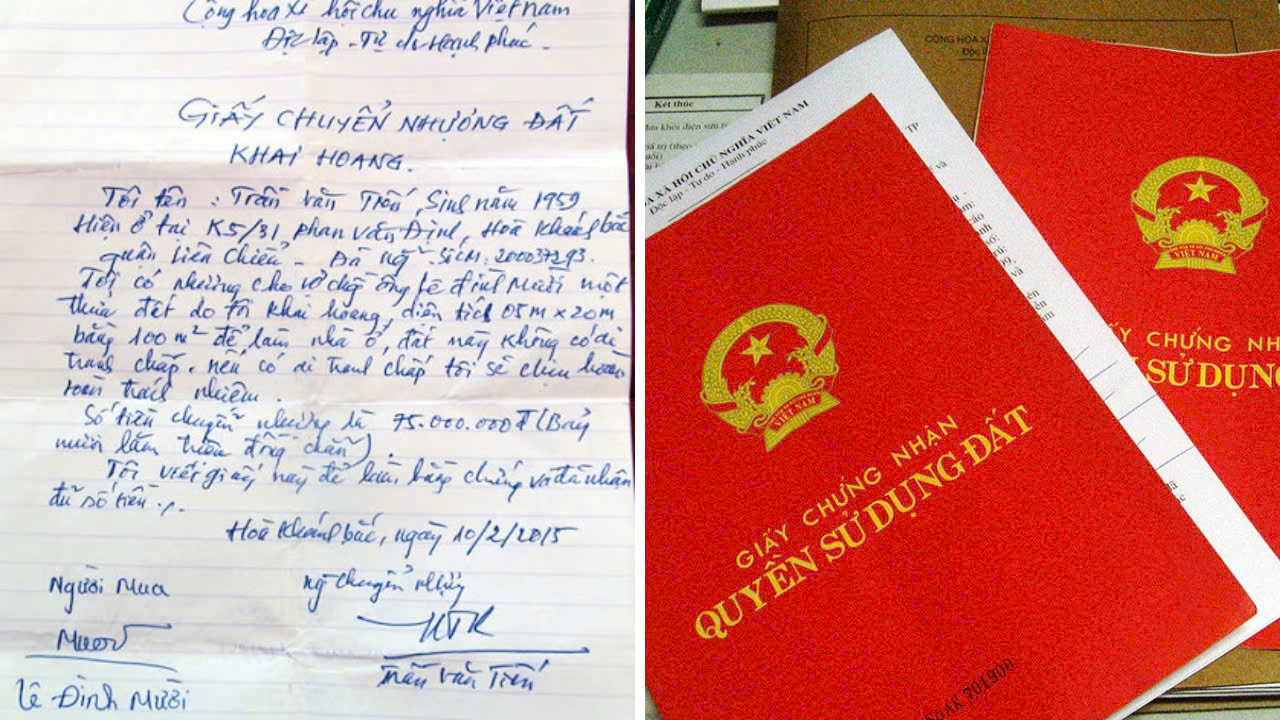 Cộng hòa xã hội chủ nghĩa Việt Nam
Độc lập - Tự do - Hạnh phúc.
GIẤY CHUYỂN NHƯỢNG ĐẤT
KHAI HOANG.
Tôi tên : Trần Văn Tiến, Sinh năm 1959
Hiện ở tại K5/31 phan văn Định, Hoà Khánh bắc
quận Liên Chiểu - Đà nẵng. Số CM: 200037293.
Tôi có nhường cho vợ chồng ông Lê đình Mười một
thửa đất do tôi khai hoang, diện tích 05m x 20m
bằng 100m² để làm nhà ở, đất này không có ai
tranh chấp. nếu có ai tranh chấp tôi sẽ chịu hoàn
toàn trách nhiệm.
Số tiền chuyển nhượng là 75.000.000đ (Bảy
mươi lăm triệu đồng chẵn).
Tôi viết giấy này để làm bằng chứng và đã nhận
đủ số tiền ./.
Hoà Khánh bắc, ngày 10/2/2015
Người Mua
ng chuyển nhượng
Mười
Trần Văn Tiến
Lê Đình Mười
CỘNG HÒA X
Độc l
Kết thúc
A XÃ HỘI CHỦ NGHĨA VIỆT NAM
Độc lập - Tự do - Hạnh phúc
TP
VIỆT NAM
GIẤY CHỨNG NHẬN
QUYỀN SỬ DỤNG ĐẤT
AK 701900
VIỆT NAM
ẤY CHỨNG NH
SỬ DỤNG